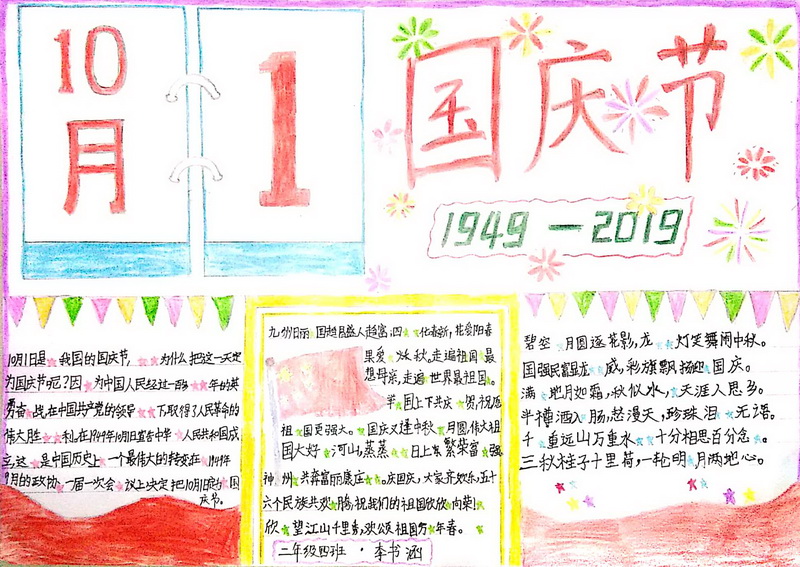 10月 1
国庆节
1949—2019
10月1日是我国的国庆节,为什么把这一天定
为国庆节呢?因为中国人民经过一百多年的英
勇奋战,在中国共产党的领导下,取得了人民革命的
伟大胜利,在1949年10月1日宣告中华人民共和国成
立,这是中国历史上一个最伟大的转变在1949年
9月的政协一届一次会议上决定把10月1日定为国
庆节。
九州日丽国越昌盛人越富;四化春新,花爱阳春
果爱秋。走遍祖国最
想母亲,走遍世界最祖国。
举国上下共庆贺,祝愿
祖国更强大。国庆又逢中秋月圆,伟大祖
国大好河山,蒸蒸日上东繁荣富强
神州共奔富丽康庄。庆国庆,大家齐欢乐,五十
六个民族共欢畅,祝我们的祖国欣欣向荣!
欣望江山千里秀,欢颂祖国万年春。
二年级四班·李书涵
碧空月圆逐花影,龙灯笙舞闹中秋。
国强民富显龙威,彩旗飘扬迎国庆。
满地月如霜,秋似水,天涯人思乡。
半樽酒入肠,愁漫天,珍珠泪无语。
千重远山万重水,十分相思百分念。
三秋桂子十里荷,一轮明月两地心。